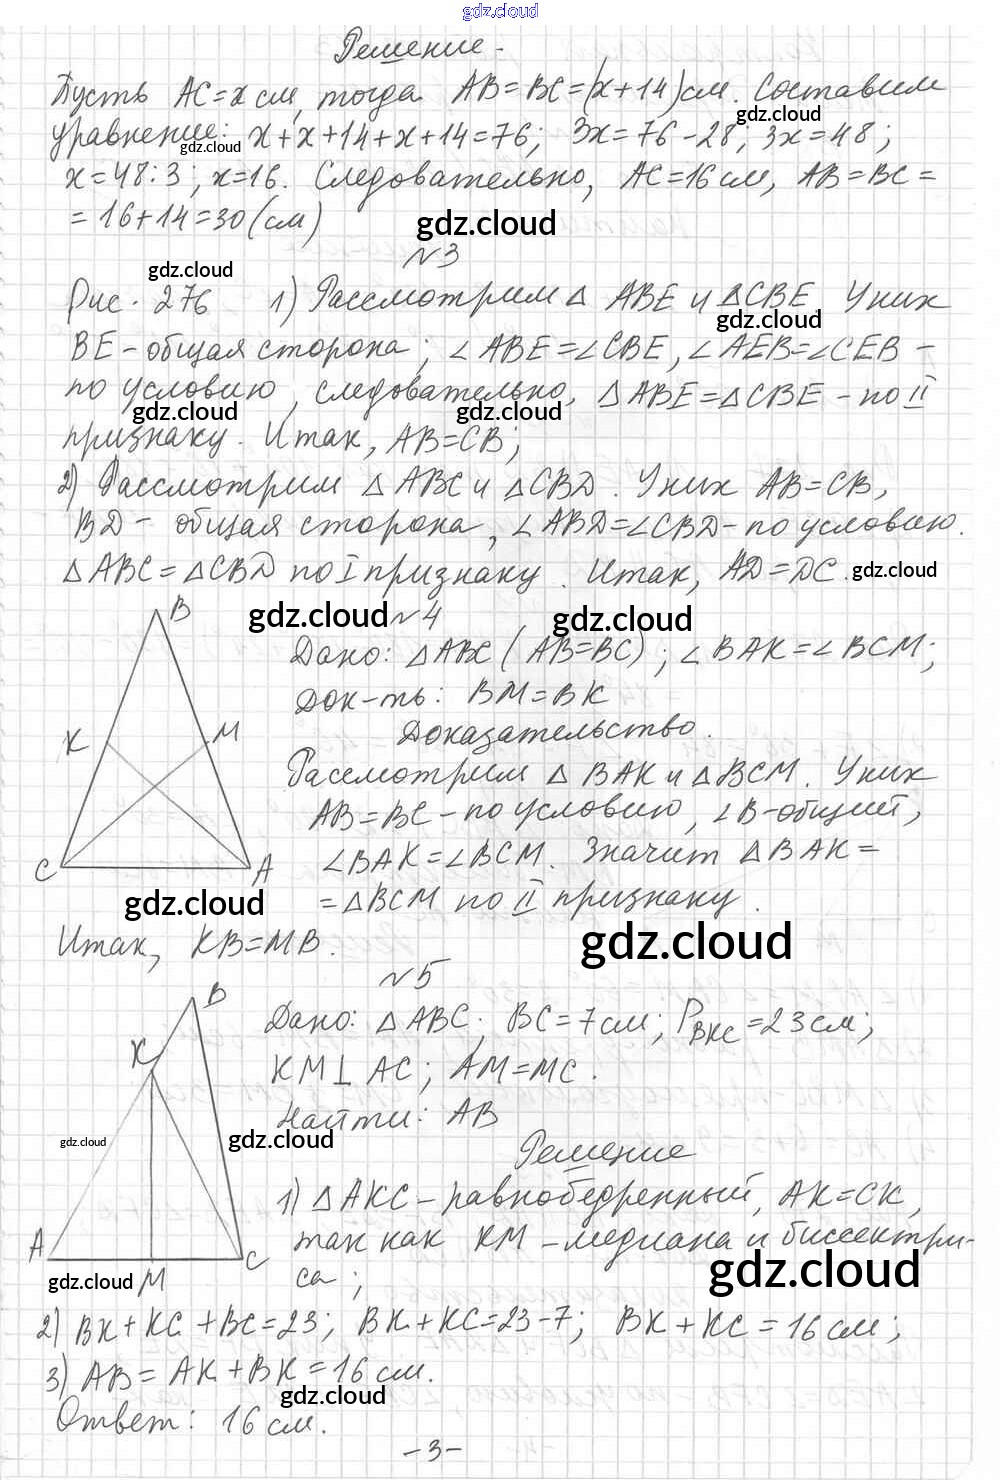 gdz.cloud
Решение.
Пусть AC=x см, тогда AB=BC=(x+14)см. Составим
уравнение: x+x+14+x+14=76; 3x=76-28; 3x=48;
gdz.cloud gdz.cloud
x=48:3; x=16. Следовательно, AC=16 см, AB=BC=
=16+14=30(см)
gdz.cloud
№3
gdz.cloud
Рис. 276 1) Рассмотрим △ ABE и △CBE. У них
gdz.cloud
BE-общая сторона; ∠ABE=∠CBE, ∠AEB=∠CEB -
по условию, следовательно, △ABE=△CBE - по II
gdz.cloud gdz.cloud
признаку. Итак, AB=CB;
2) Рассмотрим △ ABC и △CBD. У них AB=CB,
BD- общая сторона, ∠ABD=∠CBD-по условию.
△ABC=△CBD по I признаку. Итак, AD=DC.
gdz.cloud
gdz.cloud gdz.cloud
B
№4
Дано: △ABC (AB=BC); ∠BAK=∠BCM;
Док-ть: BM=BK
K M
Доказательство.
Рассмотрим △ BAK и △BCM. У них
AB=BC-по условию, ∠B-общий,
∠BAK=∠BCM. Значит △BAK=
C A
=△BCM по II признаку.
gdz.cloud
Итак, KB=MB.
gdz.cloud
№5
B
Дано: △ABC; BC=7см; PBKC=23см;
K
KM⊥AC; AM=MC.
Найти: AB
gdz.cloud gdz.cloud
Решение
1) △AKC-равнобедренный, AK=CK,
так как KM-медиана и биссектри-
A C
са;
gdz.cloud
gdz.cloud M
2) BK+KC+BC=23; BK+KC=23-7; BK+KC=16см;
3) AB=AK+BK=16 см.
gdz.cloud
Ответ: 16 см.
-3-